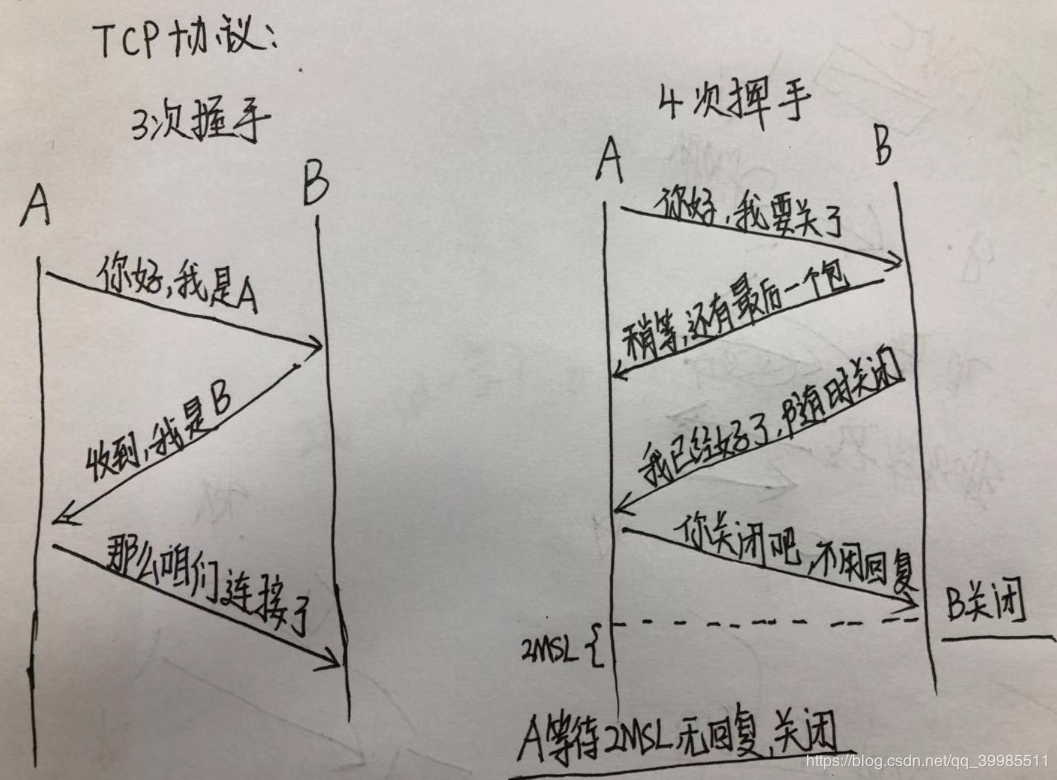 TCP协议:
3次握手
A
B
你好,我是A
收到,我是B
那么咱们连接了
4次挥手
A
B
你好,我要关了
稍等,还有最后一个包
我已经好了,随时关闭
你关闭吧,不用回复
B关闭
2MSL {
A等待2MSL无回复,关闭
https://blog.csdn.net/qq_39985511